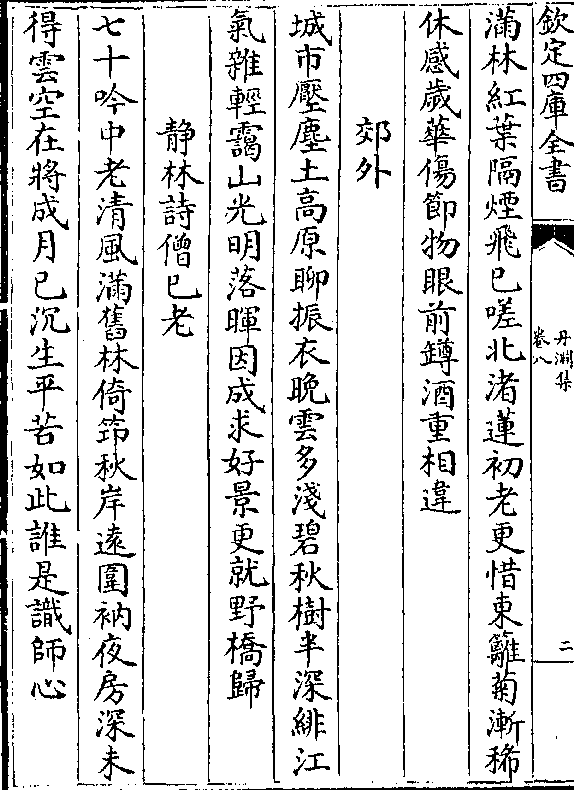 欽定四庫全書
丹淵集
卷八
二
滿林紅葉隔煙飛已嗟北渚蓮初老更惜東籬菊漸稀
休感歲華傷節物眼前罇酒重相違
郊外
城市壓塵土高原聊振衣晚雲多淺碧秋樹半深緋江
氣雜輕靄山光明落暉因成求好景更就野橋歸
靜林詩僧已老
七十吟中老清風滿舊林倚筇秋岸遠圍衲夜房深未
得雲空在將成月已沉生平苦如此誰是識師心